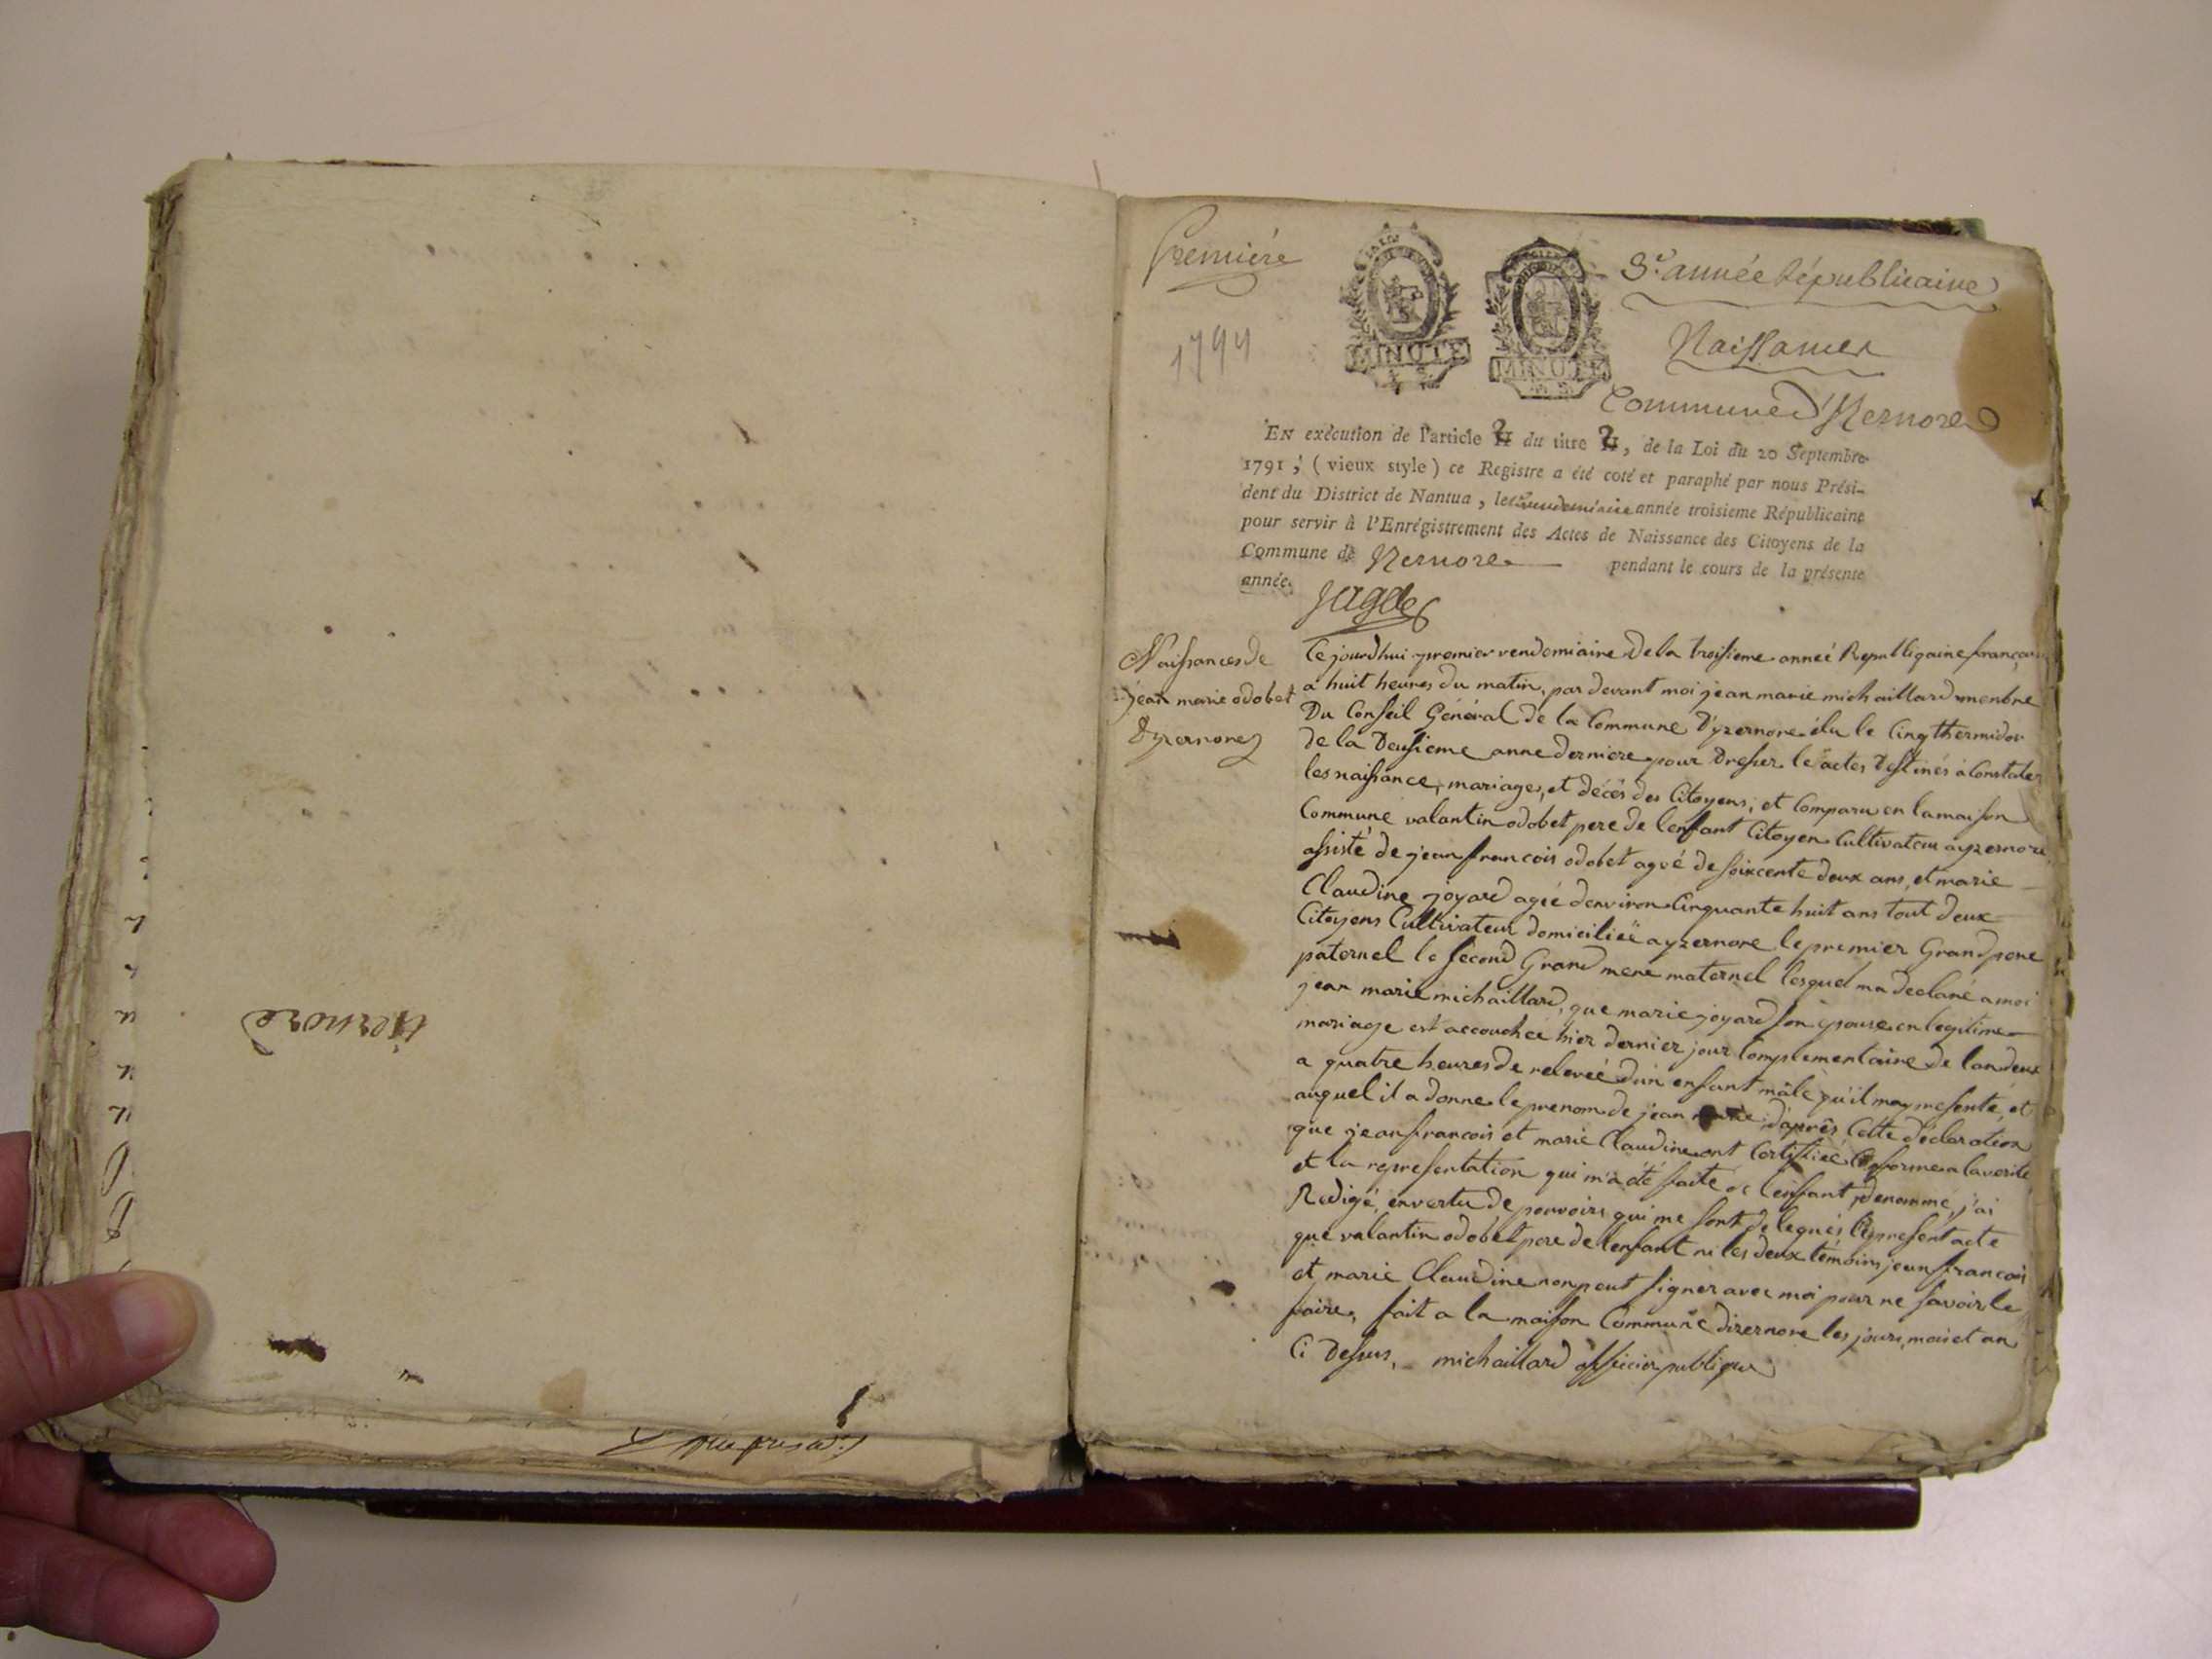 Yzernore
Premiére
1794
MINUTE
MINUTE
3.e année Républicaine
Naissances
Commune d'Yzernore
EN exécution de l'article 2 du titre 2, de la Loi du 20 Septembre
1791, (vieux style) ce Registre a été coté et paraphé par nous Prési-
dent du District de Nantua, le vendemiaire année troisieme Républicaine
pour servir à l'Enrégistrement des Actes de Naissance des Citoyens de la
Commune de Yzernore pendant le cours de la présente
année.
Naissances de
jean marie odobet
d'yzernore
Cejourdhui premier vendemiaire de la troisieme anneé Republiqaine français
a huit heures du matin, par devant moi jean marie michaillard menbre
Du Conseil Général de la Commune D'yzernore élu le Cinq thermidor
de la Deusieme anne derniere pour Dresser le actes Destinés à Constater
les naissance, mariages, et décès des Citoyens, et Comparu en la maison
Commune valantin odobet pere de lenfant Citoyen Cultivateur a yzernore
assisté de jean francois odobet ageé de soixcente deux ans, et marie
Claudine joyard ageé denviron Cinquante huit ans tout deux
Citoyens Cultivateur domicilieé a yzernore le premier Grand pere
paternel le second Grand mere maternel lesquel ma declaré a moi
jean marie michaillard, que marie joyard son epouse en legitime
mariage est accouchée hier dernier jour Complementaire de lan deux
a quatre heures de releveé d'un enfant mâle qu'il may presenté, et
auquel il a donne le prenom de jean marie, d'après Cette déclaration
que jean francois et marie Claudine ont Certifiée Conforme a la verité
et la representation qui m'a été faite de l'enfant denomme, j'ai
Redigé, en vertu de pouvoirs qui me sont delegués le present acte
que valantin odobet pere de lenfant ni les deux témoins jean francois
et marie Claudine nonpeut signer avec moi pour ne savoir le
faire, fait a la maison Commune dizernore les jours, mois et an
Ci Dessus, michaillard officier publique